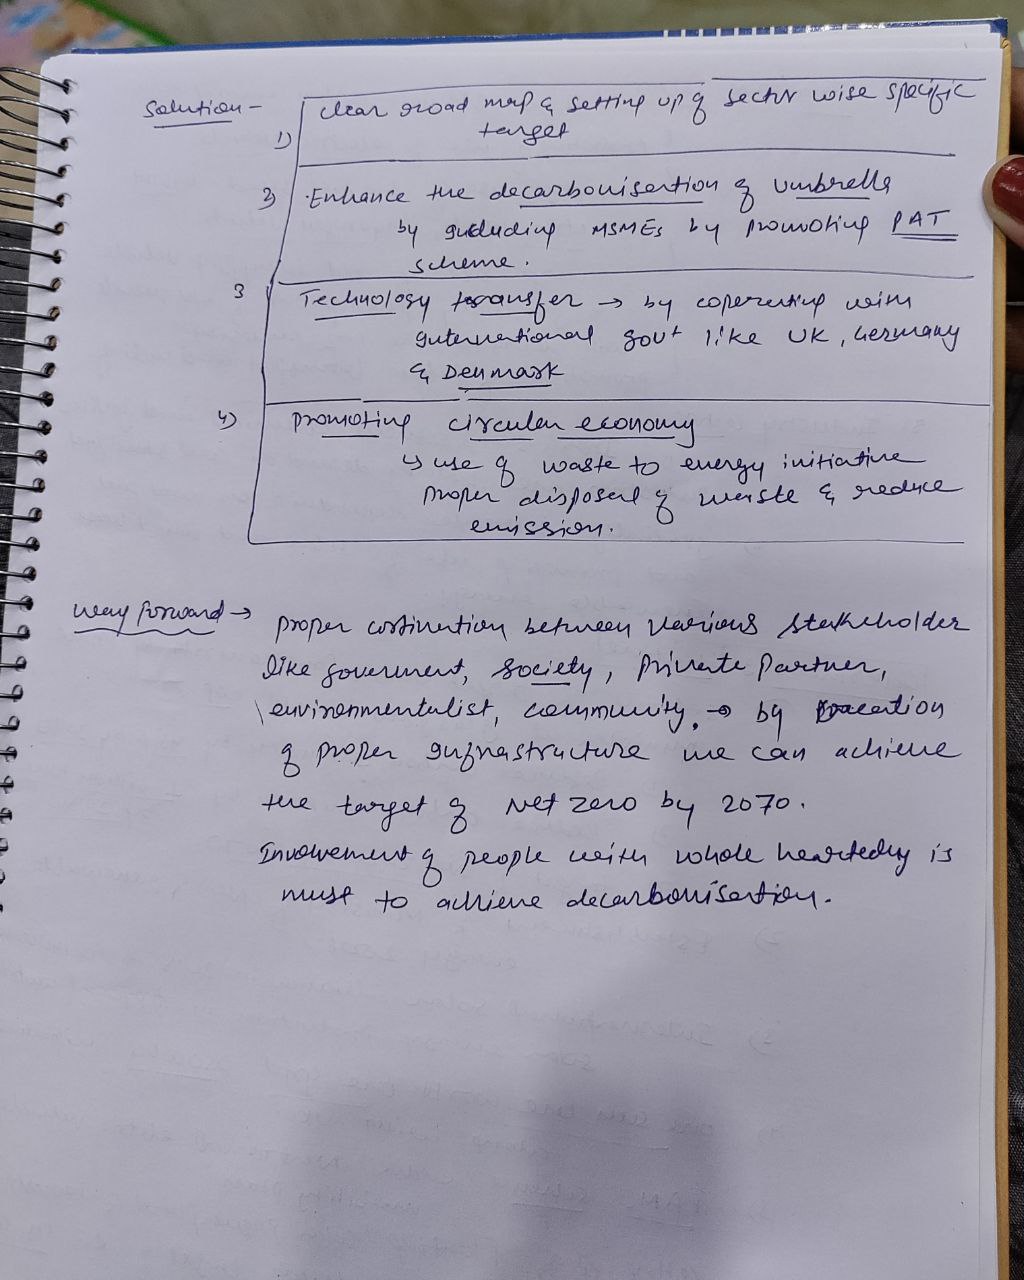 Solution -
1) clear road map & setting up of sector wise specific
target
2) Enhance the decarbonisation of umbrella
by including MSMEs by promoting PAT
scheme.
3 Technology transfer → by coperating with
international govt like UK, Germany
& Denmark
4) promoting circular economy
↳ use of waste to energy initiative
proper disposal of waste & reduce
emission.
way forward → proper cordination between various stakeholder
like goverment, society, private partner,
environmentalist, community. → by creation
of proper infrastructure we can achieve
the target of Net zero by 2070.
Involvement of people with whole heartedly is
must to achieve decarbonisation.